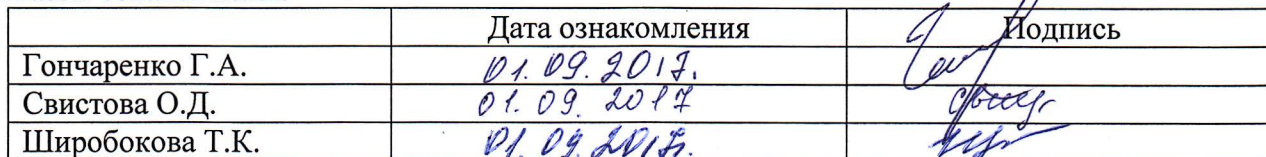 Дата ознакомления Подпись
Гончаренко Г.А. 01.09.2017.
Свистова О.Д. 01.09.2017
Широбокова Т.К. 01.09.2017г.